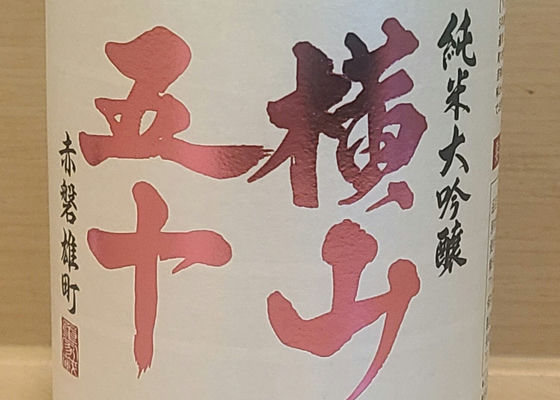 純米大吟醸
横山
五十
赤磐雄町